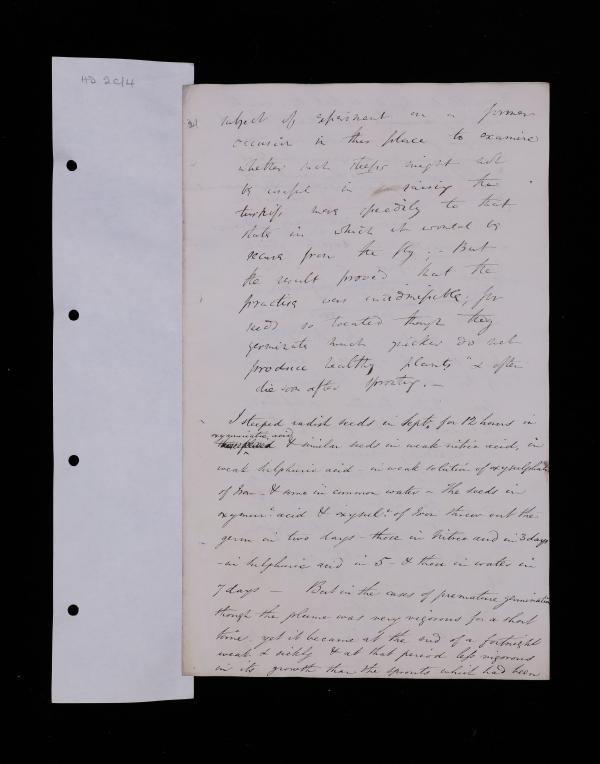 HD 2C/4
subject of experiment on a former
occasion in this place to examine
whether such steeps might not
be useful in raising the
turnips more speedily to that
state in which it would be
secure from the fly; - But
the result proved that the
practice was inadmissible; for
seeds so treated though they
germinate much quicker do not
produce healthy plants & often
die soon after sprouting. -
I steeped radish seeds in Sept. for 12 hours in
oxymuriatic acid
& similar seeds in weak nitric acid, in
weak sulphuric acid - in weak solution of oxysulphate
of Iron - & some in common water - The seeds in
oxymur. acid & oxysul. of Iron threw out the
germ in two days - those in Nitric acid in 3 days
- in sulphuric acid in 5 - & those in water in
7 days - But in the cases of premature germination
though the plume was very vigorous for a short
time, yet it became at the end of a fortnight
weak & sickly & at that period less vigorous
in its growth than the sprouts which had been